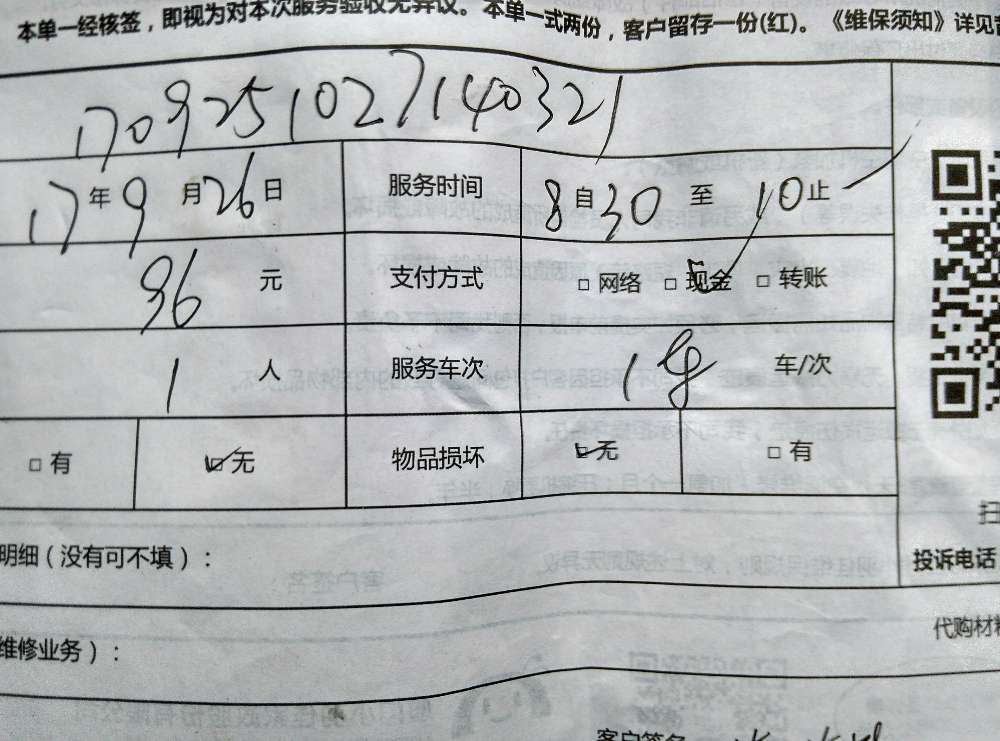 本单一经核签，即视为对本次服务验收无异议。本单一式两份，客户留存一份(红)。《维保须知》详见
1709251027140321
17年9月26日 服务时间 8自30至10止
96元 支付方式 □网络 □现金 □转账
1人 服务车次 1 车/次
□有 □无 物品损坏 □无 □有
明细（没有可不填）：
投诉电话
代购材料
维修业务）：
客户签名